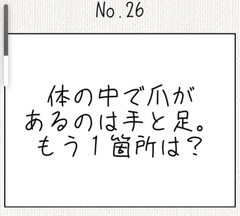 No.26
体の中で爪が
あるのは手と足。
もう1箇所は？